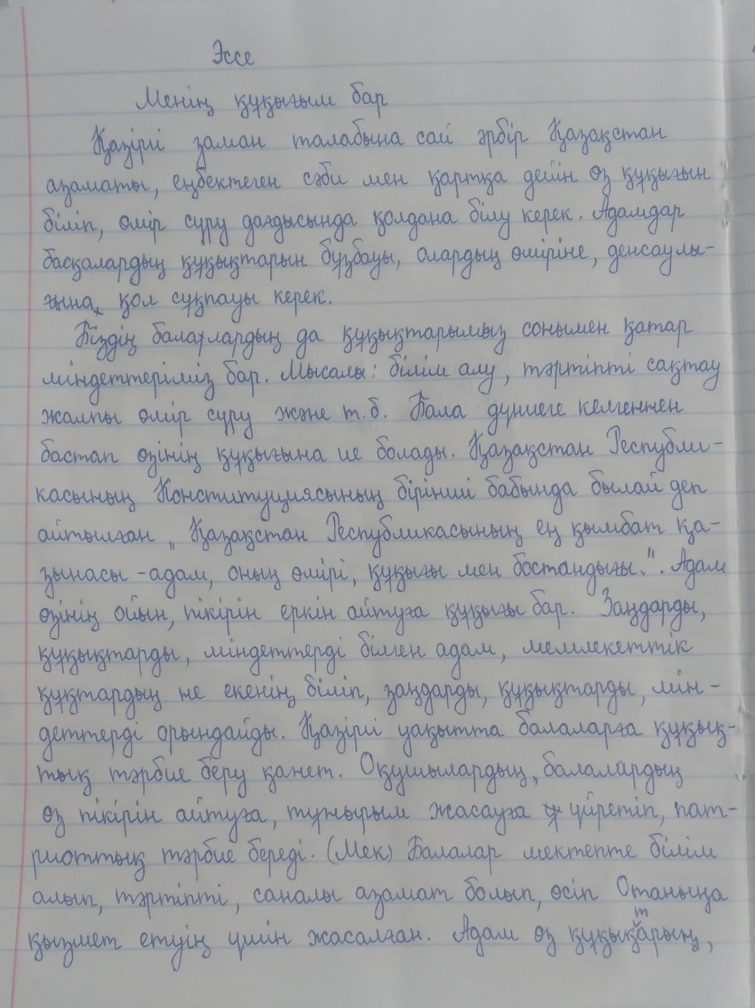 Эссе
Менің құқығым бар
Қазіргі заман талабына сай әрбір Қазақстан
азаматы, еңбектеген сәби мен қартқа дейін өз құқығын
біліп, өмір сүру дағдысында қолдана білу керек. Адамдар
басқалардың құқықтарын бұзбауы, олардың өміріне, денсаулы-
ғына қол сұқпауы керек.
Біздің балалардың да құқықтарымыз сонымен қатар
міндеттеріміз бар. Мысалы: білім алу, тәртіпті сақтау
жалпы өмір сүру және т.б. Бала дүниеге келгеннен
бастап өзінің құқығына ие болады. Қазақстан Республи-
касының Конституциясының бірінші бабында былай деп
айтылған „Қазақстан Республикасының ең қымбат қа-
зынасы -адам, оның өмірі, құқығы мен бостандығы.". Адам
өзінің ойын, пікірін еркін айтуға құқығы бар. Заңдарды,
құқықтарды, міндеттерді білген адам, мемлекеттік
құқтардың не екенің біліп, заңдарды, құқықтарды, мін-
деттерді орындайды. Қазіргі уақытта балаларға құқық-
тық тәрбие беру қажет. Оқушылардың, балалардың
өз пікірін айтуға, тұжырым жасауға үйретіп, пат-
риоттық тәрбие береді. (Мек) Балалар мектепте білім
алып, тәртіпті, саналы азамат болып, өсіп Отаныңа
қызмет етуің үшін жасалған. Адам өз құқықтарың,